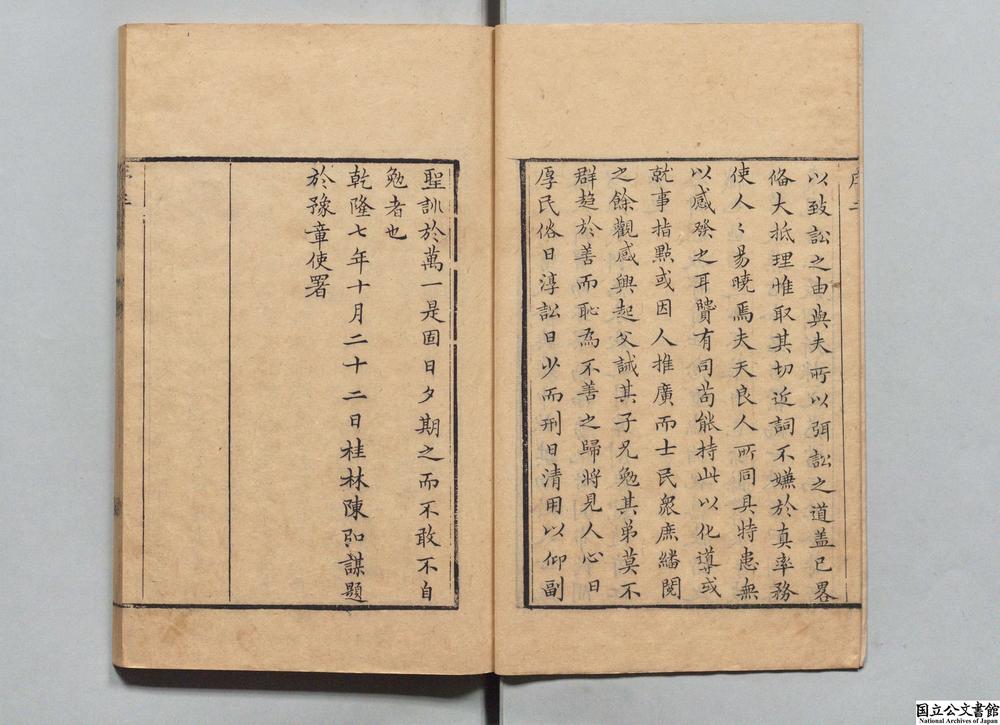 以致訟之由與夫所以弭訟之道盖已畧
俻大抵理惟取其切近詞不嫌於真率務
使人〻易曉焉夫天良人所同具特患無
以感發之耳賢有司苟能持此以化導或
就事指點或因人推廣而士民衆庶繙閱
之餘觀感興起父誡其子兄勉其弟莫不
群趋於善而恥為不善之歸將見人心日
厚民俗日淳訟日少而刑日清用以仰副
聖訓於萬一是固日夕期之而不敢不自
勉者也
乾隆七年十月二十二日桂林陳弘謀題
於豫章使署
国立公文書館
National Archives of Japan